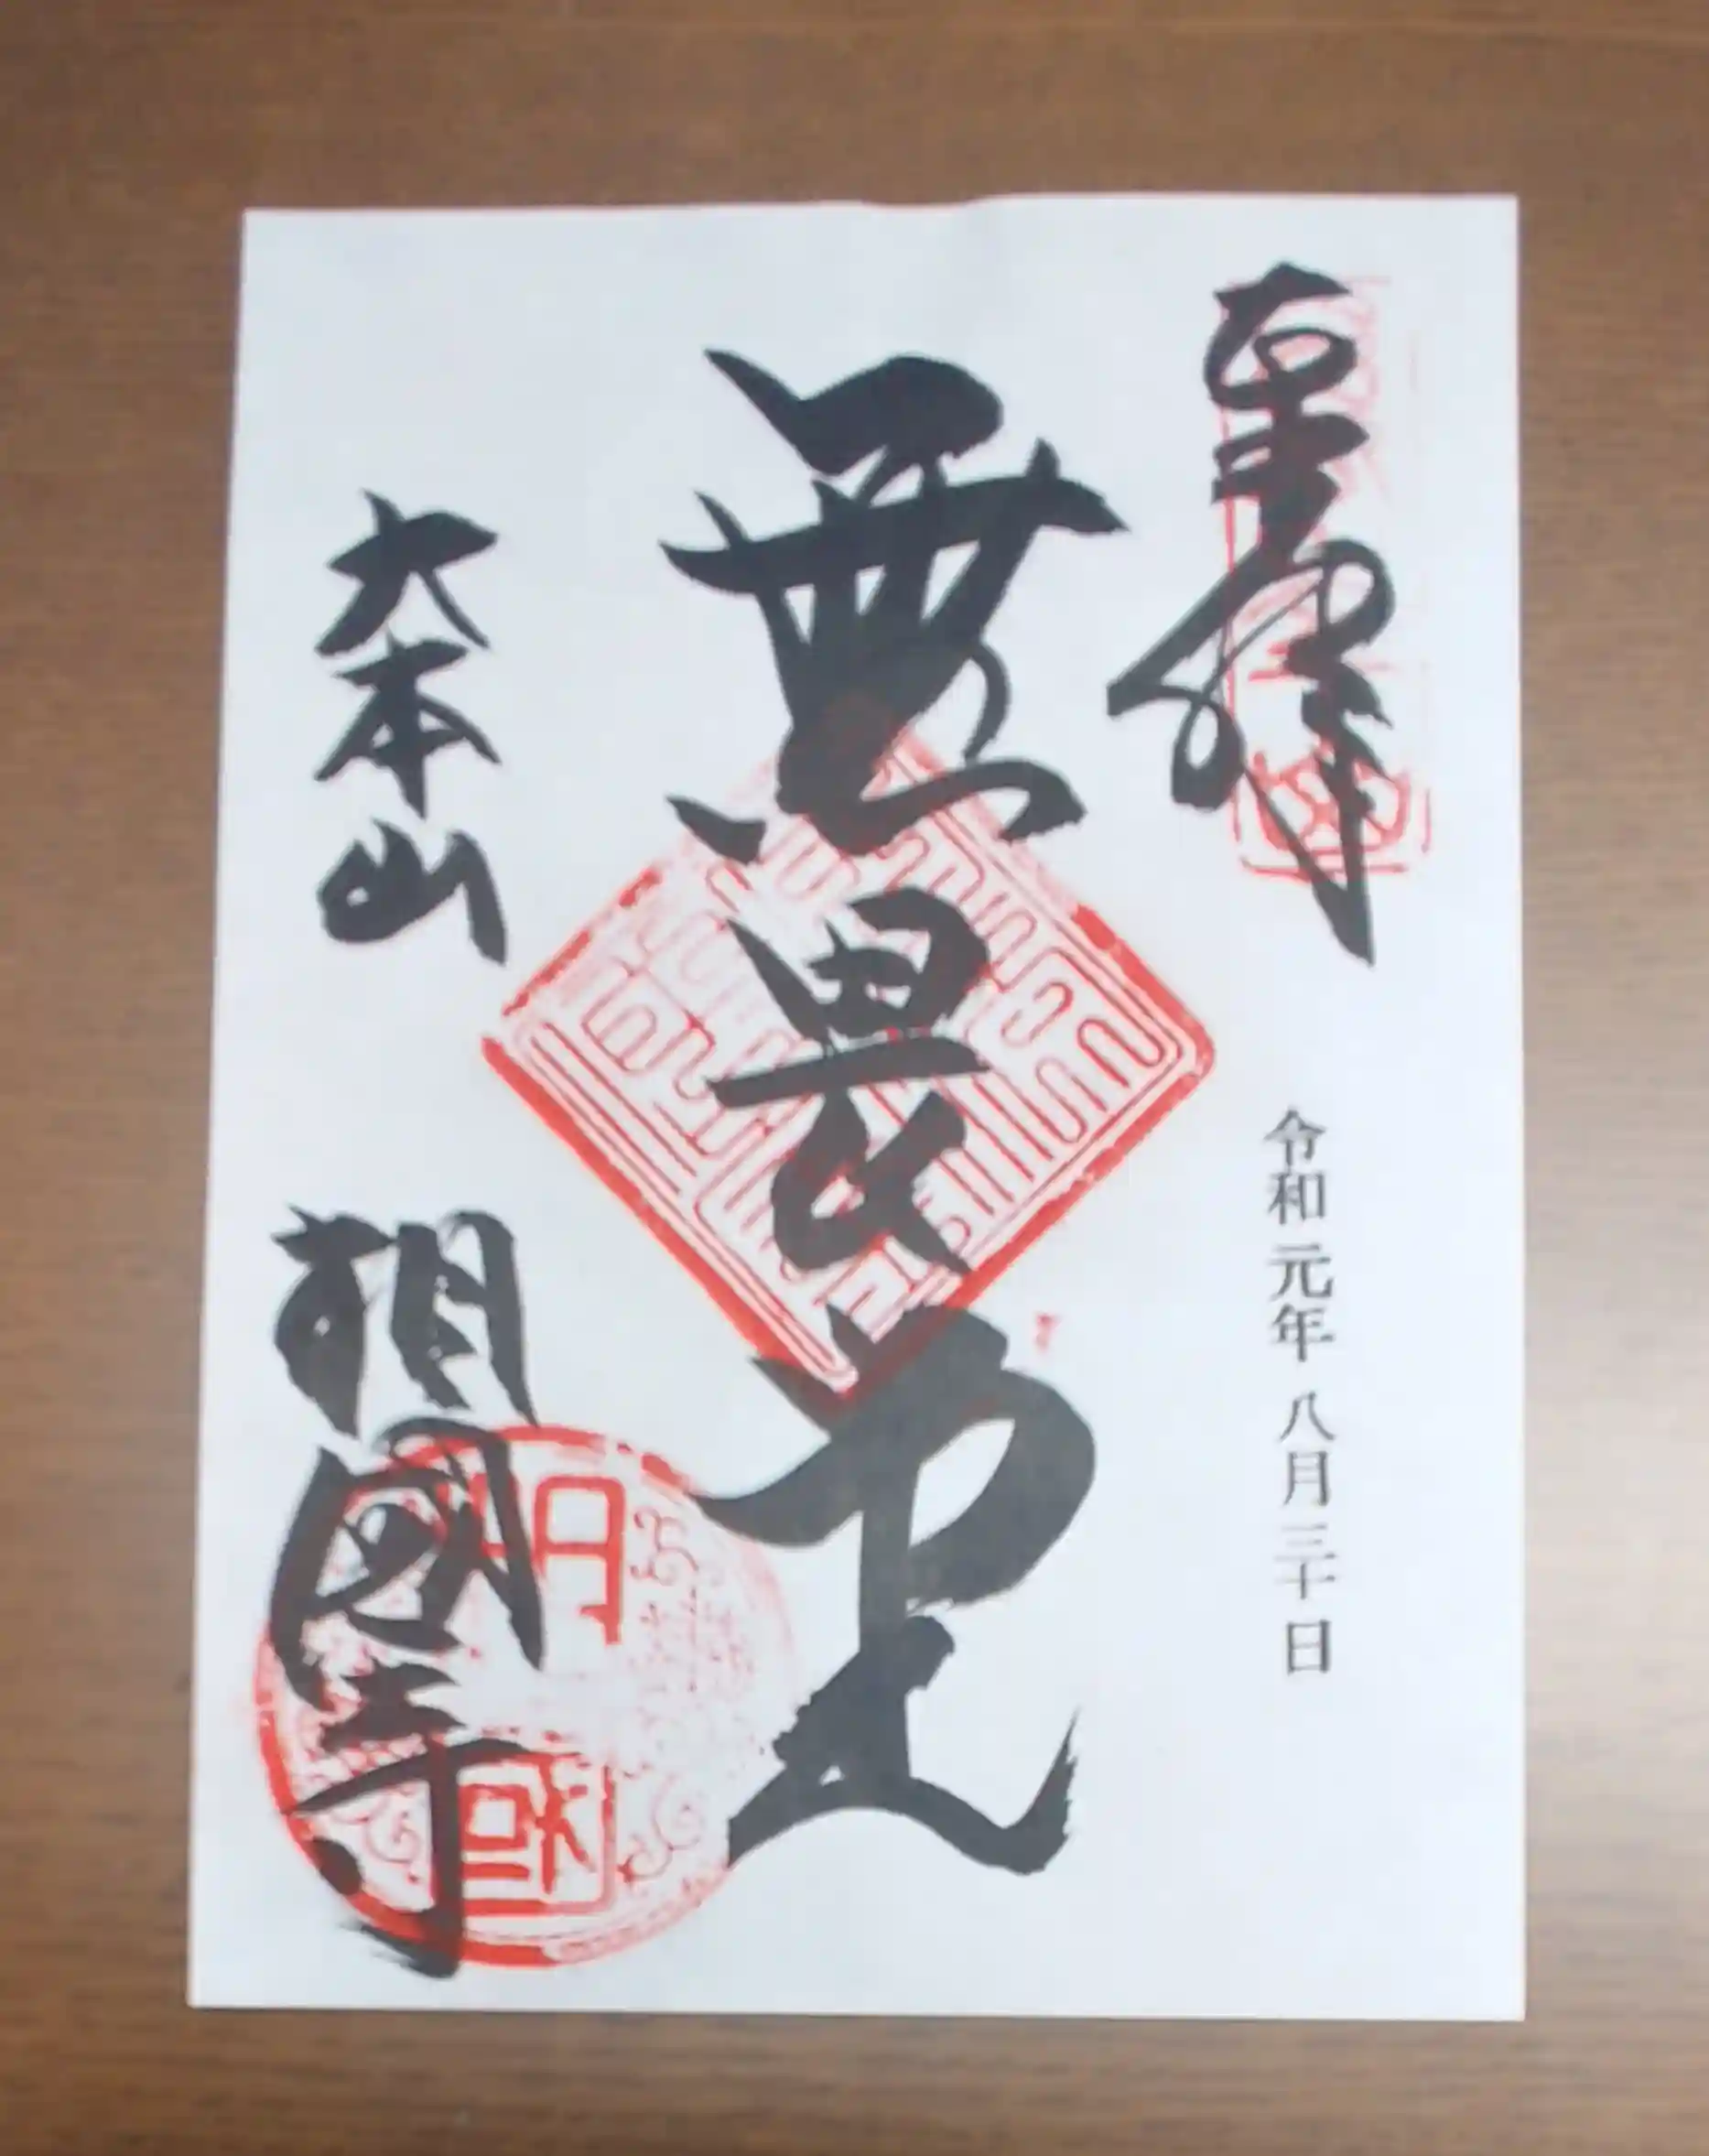 奉拝
令和元年 八月三十日
無畏堂
大本山
相國寺